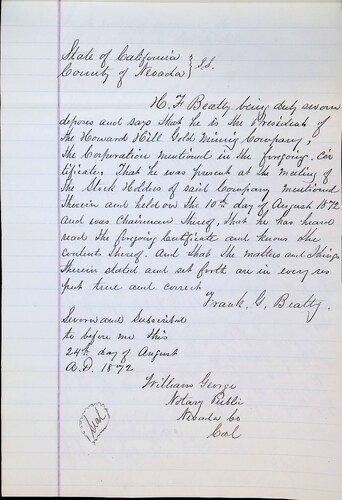 State of California } S.S.
County of Nevada
H. F. Beatty being duly sworn
deposes and says that he is the President of
the Howard Hill Gold Mining Company,
the Corporation mentioned in the foregoing Cer
tificate. That he was present at the meeting of
the Stock Holders of said Company mentioned
therein and held on the 10th day of August 1872
and was Chairman thereof, that he has heard
read the forgoing Certificate and knows the
contents thereof. And that the matters and things
therein stated and set forth are in every res
pect true and correct
Frank. G. Beatty.
Sworn and Subscribed
to before me this
24th day of August
A.D. 1872
William George
Notary Public
Nevada Co
Cal
Seal